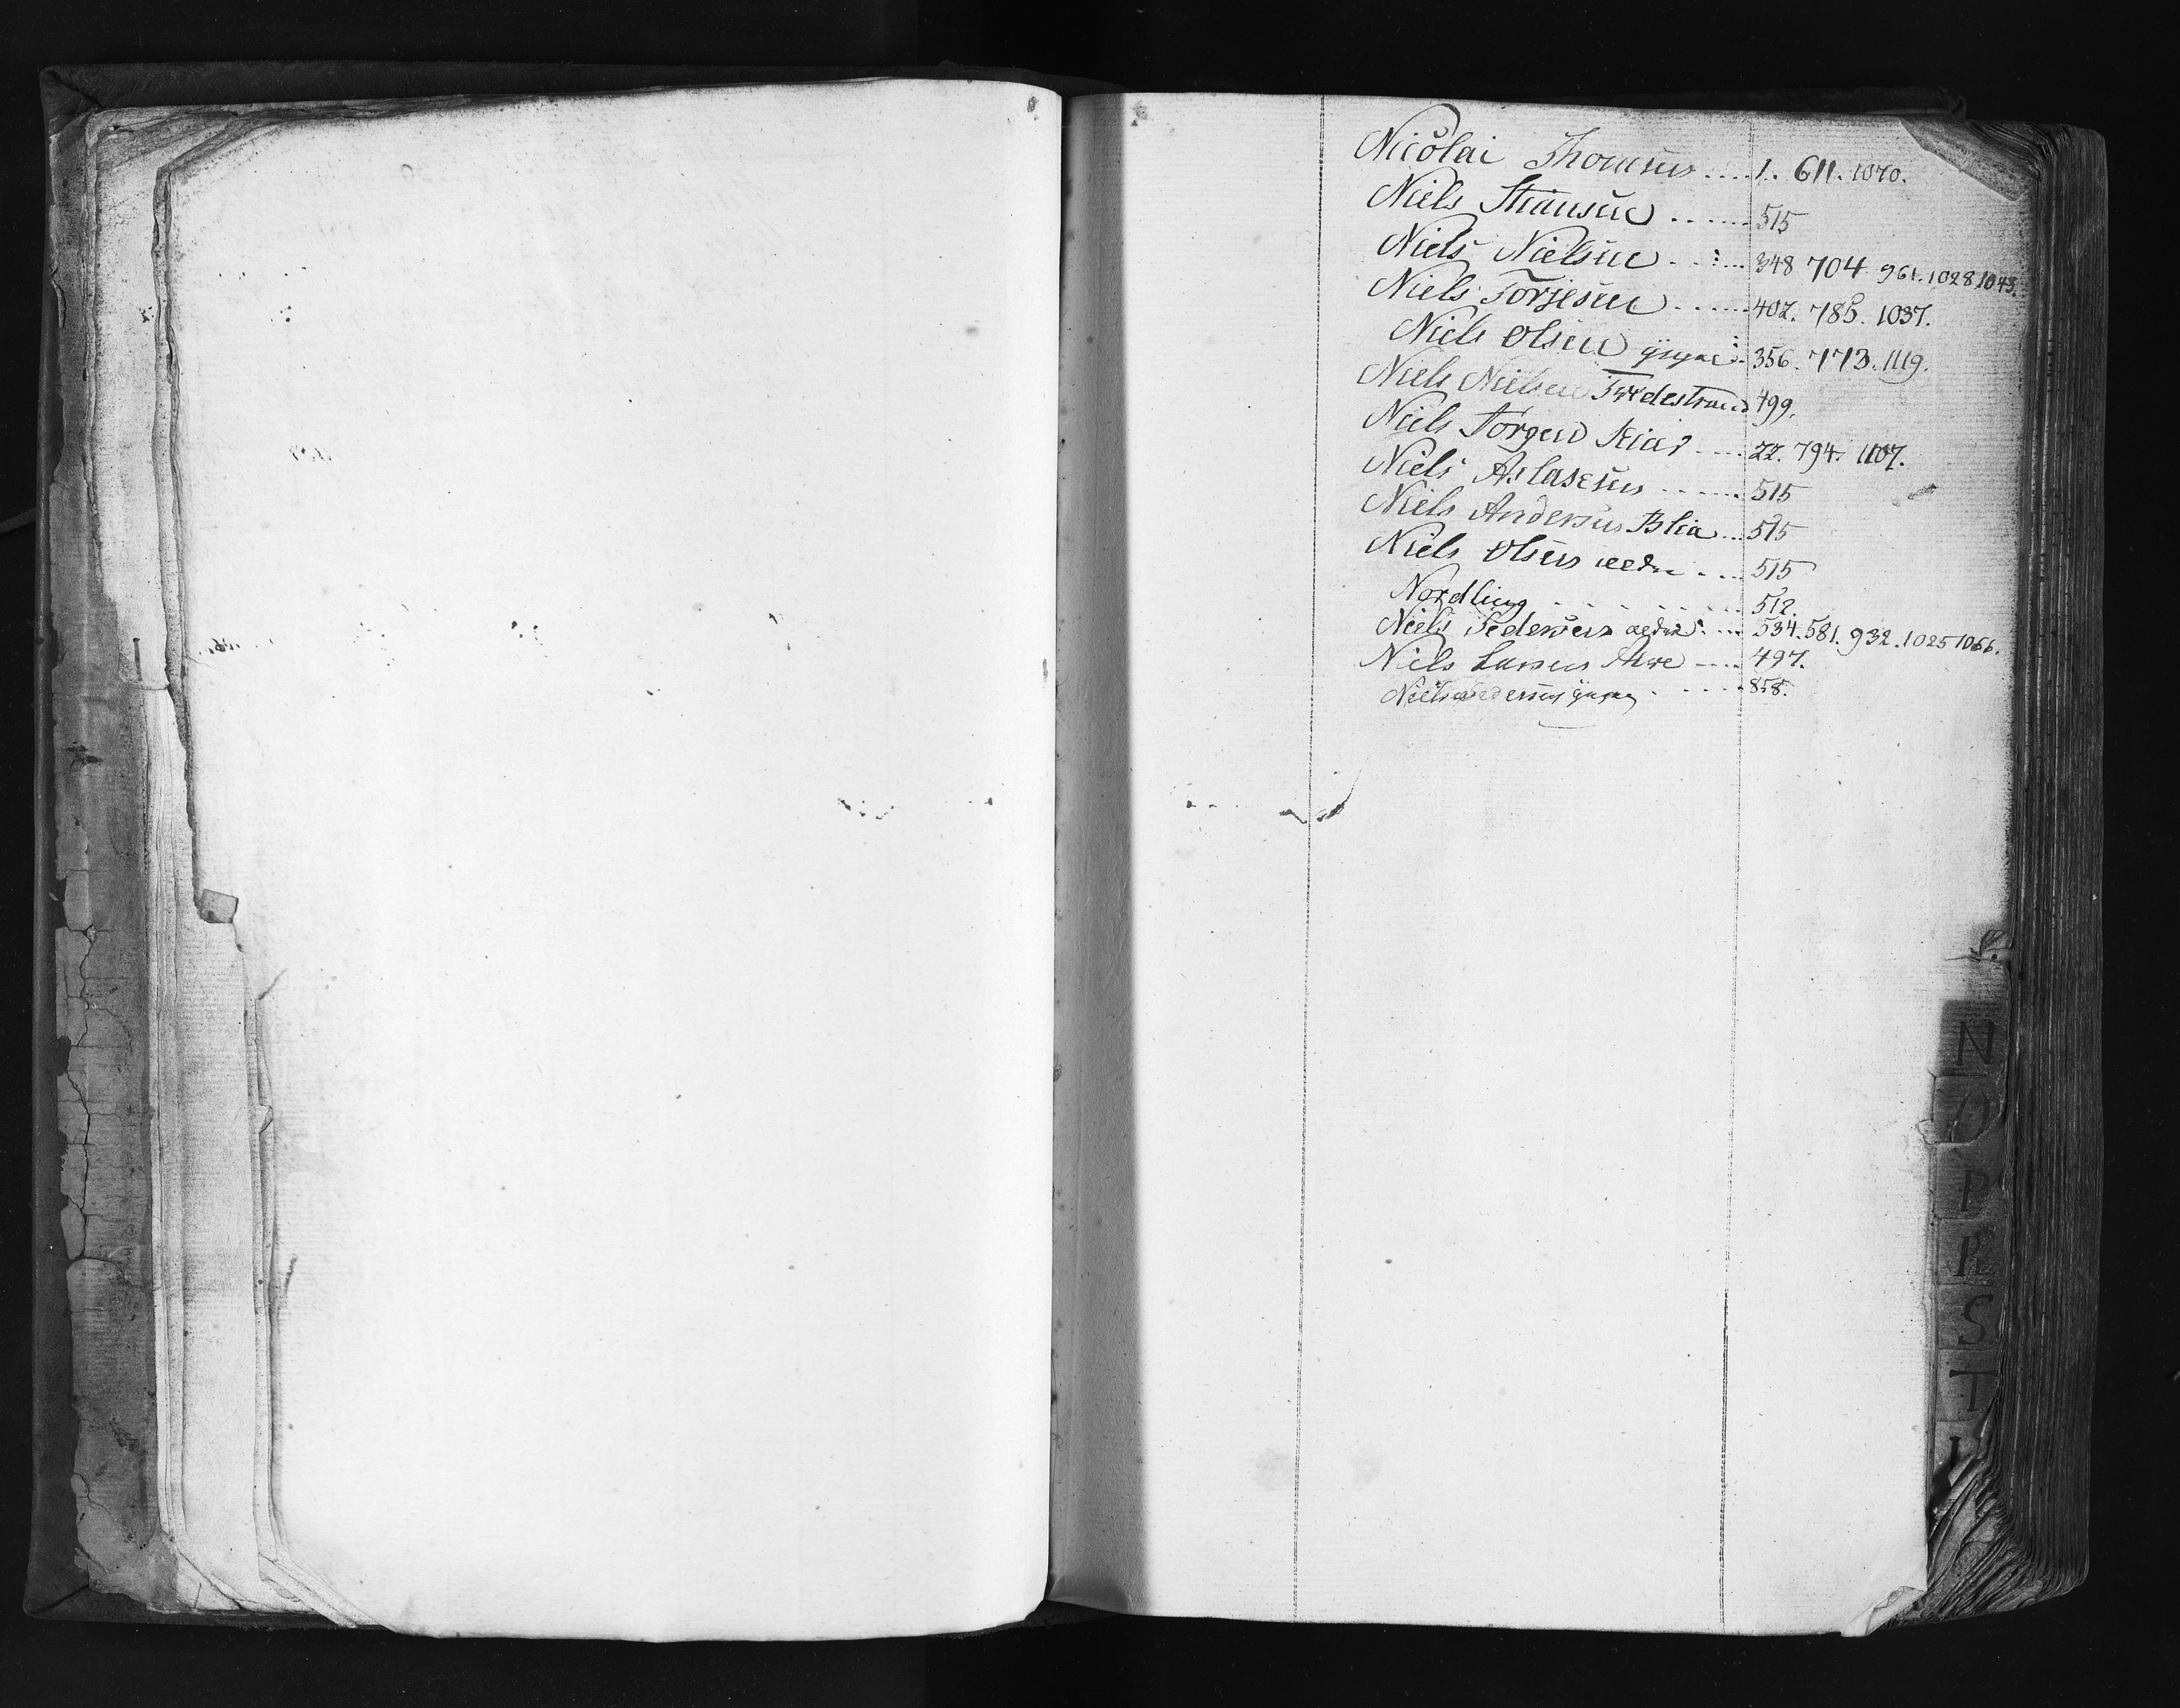 Nicolai Thomsen .... 1. 611. 1070.
Niels Stiansen ....... 515
Niels Nielsen ..:... 348 704. 961. 1028 1043.
Niels Torjesen ...... 402. 785. 1037.
Niels Olsen yngre .. 356. 773. 1119.
Niels Nielsen Tvedestrand 499.
Niels Jörgen Kiær .... 22. 794. 1107.
Niels Aslaksen ...... 515
Niels Andersen Blia ... 515
Niels Olsen ældre .... 515
Nordling ....... 512.
Niels Pedersen ældre .... 534. 581. 932. 1025 1066.
Niels Larsen .... 497.
Niels Pedersen yngre ..... 858.
N
O
P
R
S
T